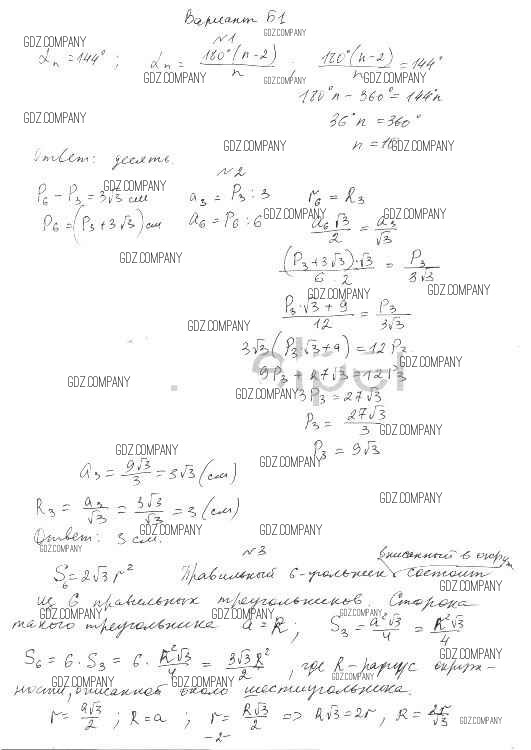 Вариант Б1
№1
αₙ = 144°; αₙ = 180°(n-2)/n; 180°(n-2)/n = 144°
180°n - 360° = 144°n
36°n = 360°
n = 10
Ответ: десять.
№2
P₆ - P₃ = 3√3 см a₃ = P₃ : 3 r₆ = R₃
P₆ = (P₃ + 3√3) см a₆ = P₆ : 6 a₆√3/2 = a₃/√3
(P₃ + 3√3)·√3/6·2 = P₃/3√3
P₃·√3 + 9/12 = P₃/3√3
3√3(P₃·√3 + 9) = 12P₃
9P₃ + 27√3 = 12P₃
3P₃ = 27√3
P₃ = 27√3/3
P₃ = 9√3
a₃ = 9√3/3 = 3√3 (см)
R₃ = a₃/√3 = 3√3/√3 = 3 (см)
Ответ: 3 см.
№3
вписанный в окруж
S₆ = 2√3 r² Правильный 6-угольник состоит
из 6 правильных треугольников. Сторона
такого треугольника a = R; S₃ = a²√3/4 = R²√3/4
S₆ = 6·S₃ = 6·R²√3/4 = 3√3R²/2, где R - радиус окруж-
ности, описанной около шестиугольника.
r = a√3/2; R = a; r = R√3/2 => R√3 = 2r, R = 2r/√3
-2-
GDZ.COMPANY